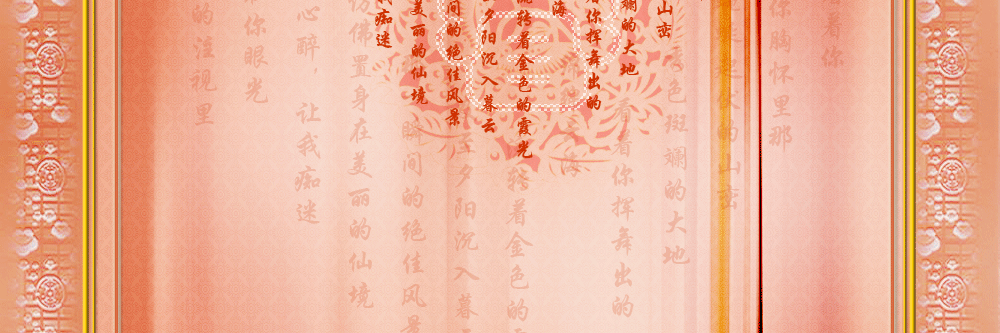 看着你
你胸怀里那
起伏的山峦
色斑斓的大地
看着你挥舞出的
海
转着金色的
夕阳沉入暮
瞬间的绝佳风景
仿佛置身在美丽的仙境
心醉，让我痴迷
你眼光
的注视里
山峦
斓的大地
着你挥舞出的
海
流转着金色的霞光
夕阳沉入暮云
间的绝佳风景
美丽的仙境
我痴迷